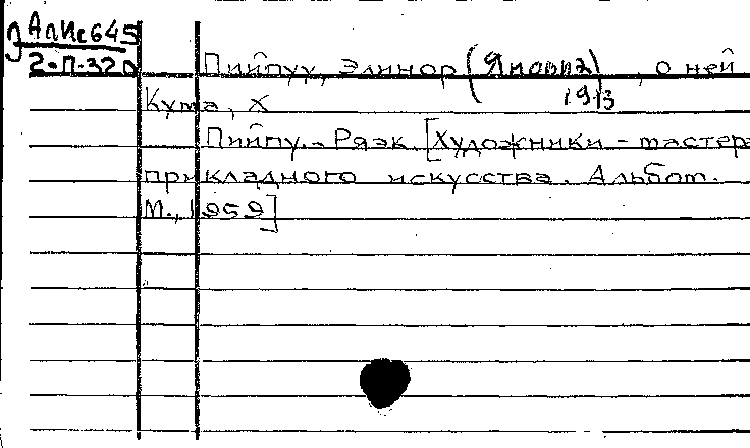 АлИс645
2-П-32
Пийпуу, Элинор (Яновна) , о ней
1913
Кума, Х
Пийпу. - Раэк [Художники - мастера
прикладного искусства. Альбом.
М., 1959]